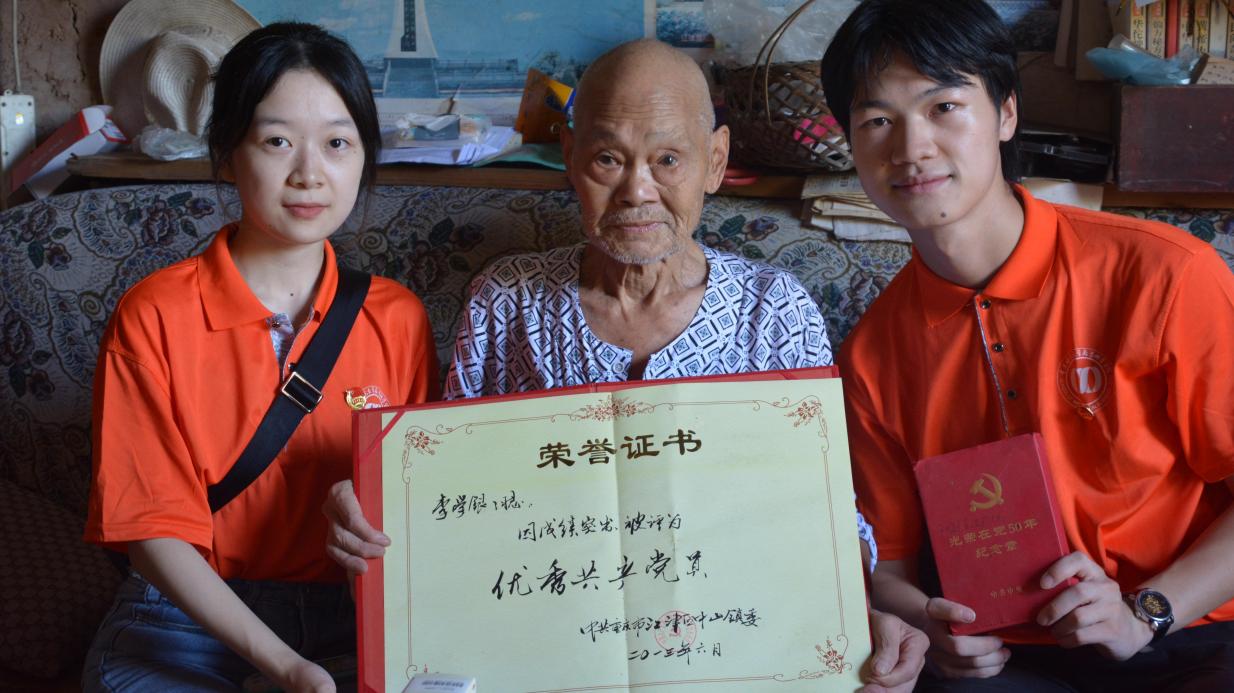 荣誉证书
李学银同志：
因成绩突出，被评为
优秀共产党员
中共重庆市江津区中山镇委
二〇一三年六月
光荣在党50年
纪念章